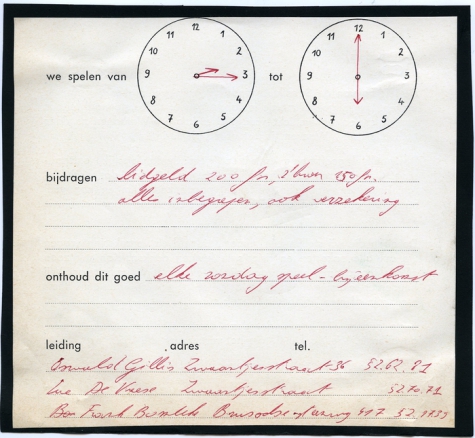 12 12
11 1 11 1
10 2 10 2
we spelen van 9 3 tot 9 3
8 4 8 4
7 5 7 5
6 6
bijdragen lidgeld 200 fr, 150 fr.
alles inbegrepen, ook verzekering
onthoud dit goed elke zondag speel-bijeenkomst
leiding adres tel.
Oswald Gillis Zwaartjesstraat 36 52.62.81
Luc De Vriese Zwaartjesstraat 52.70.71
Frank 417 52.1733